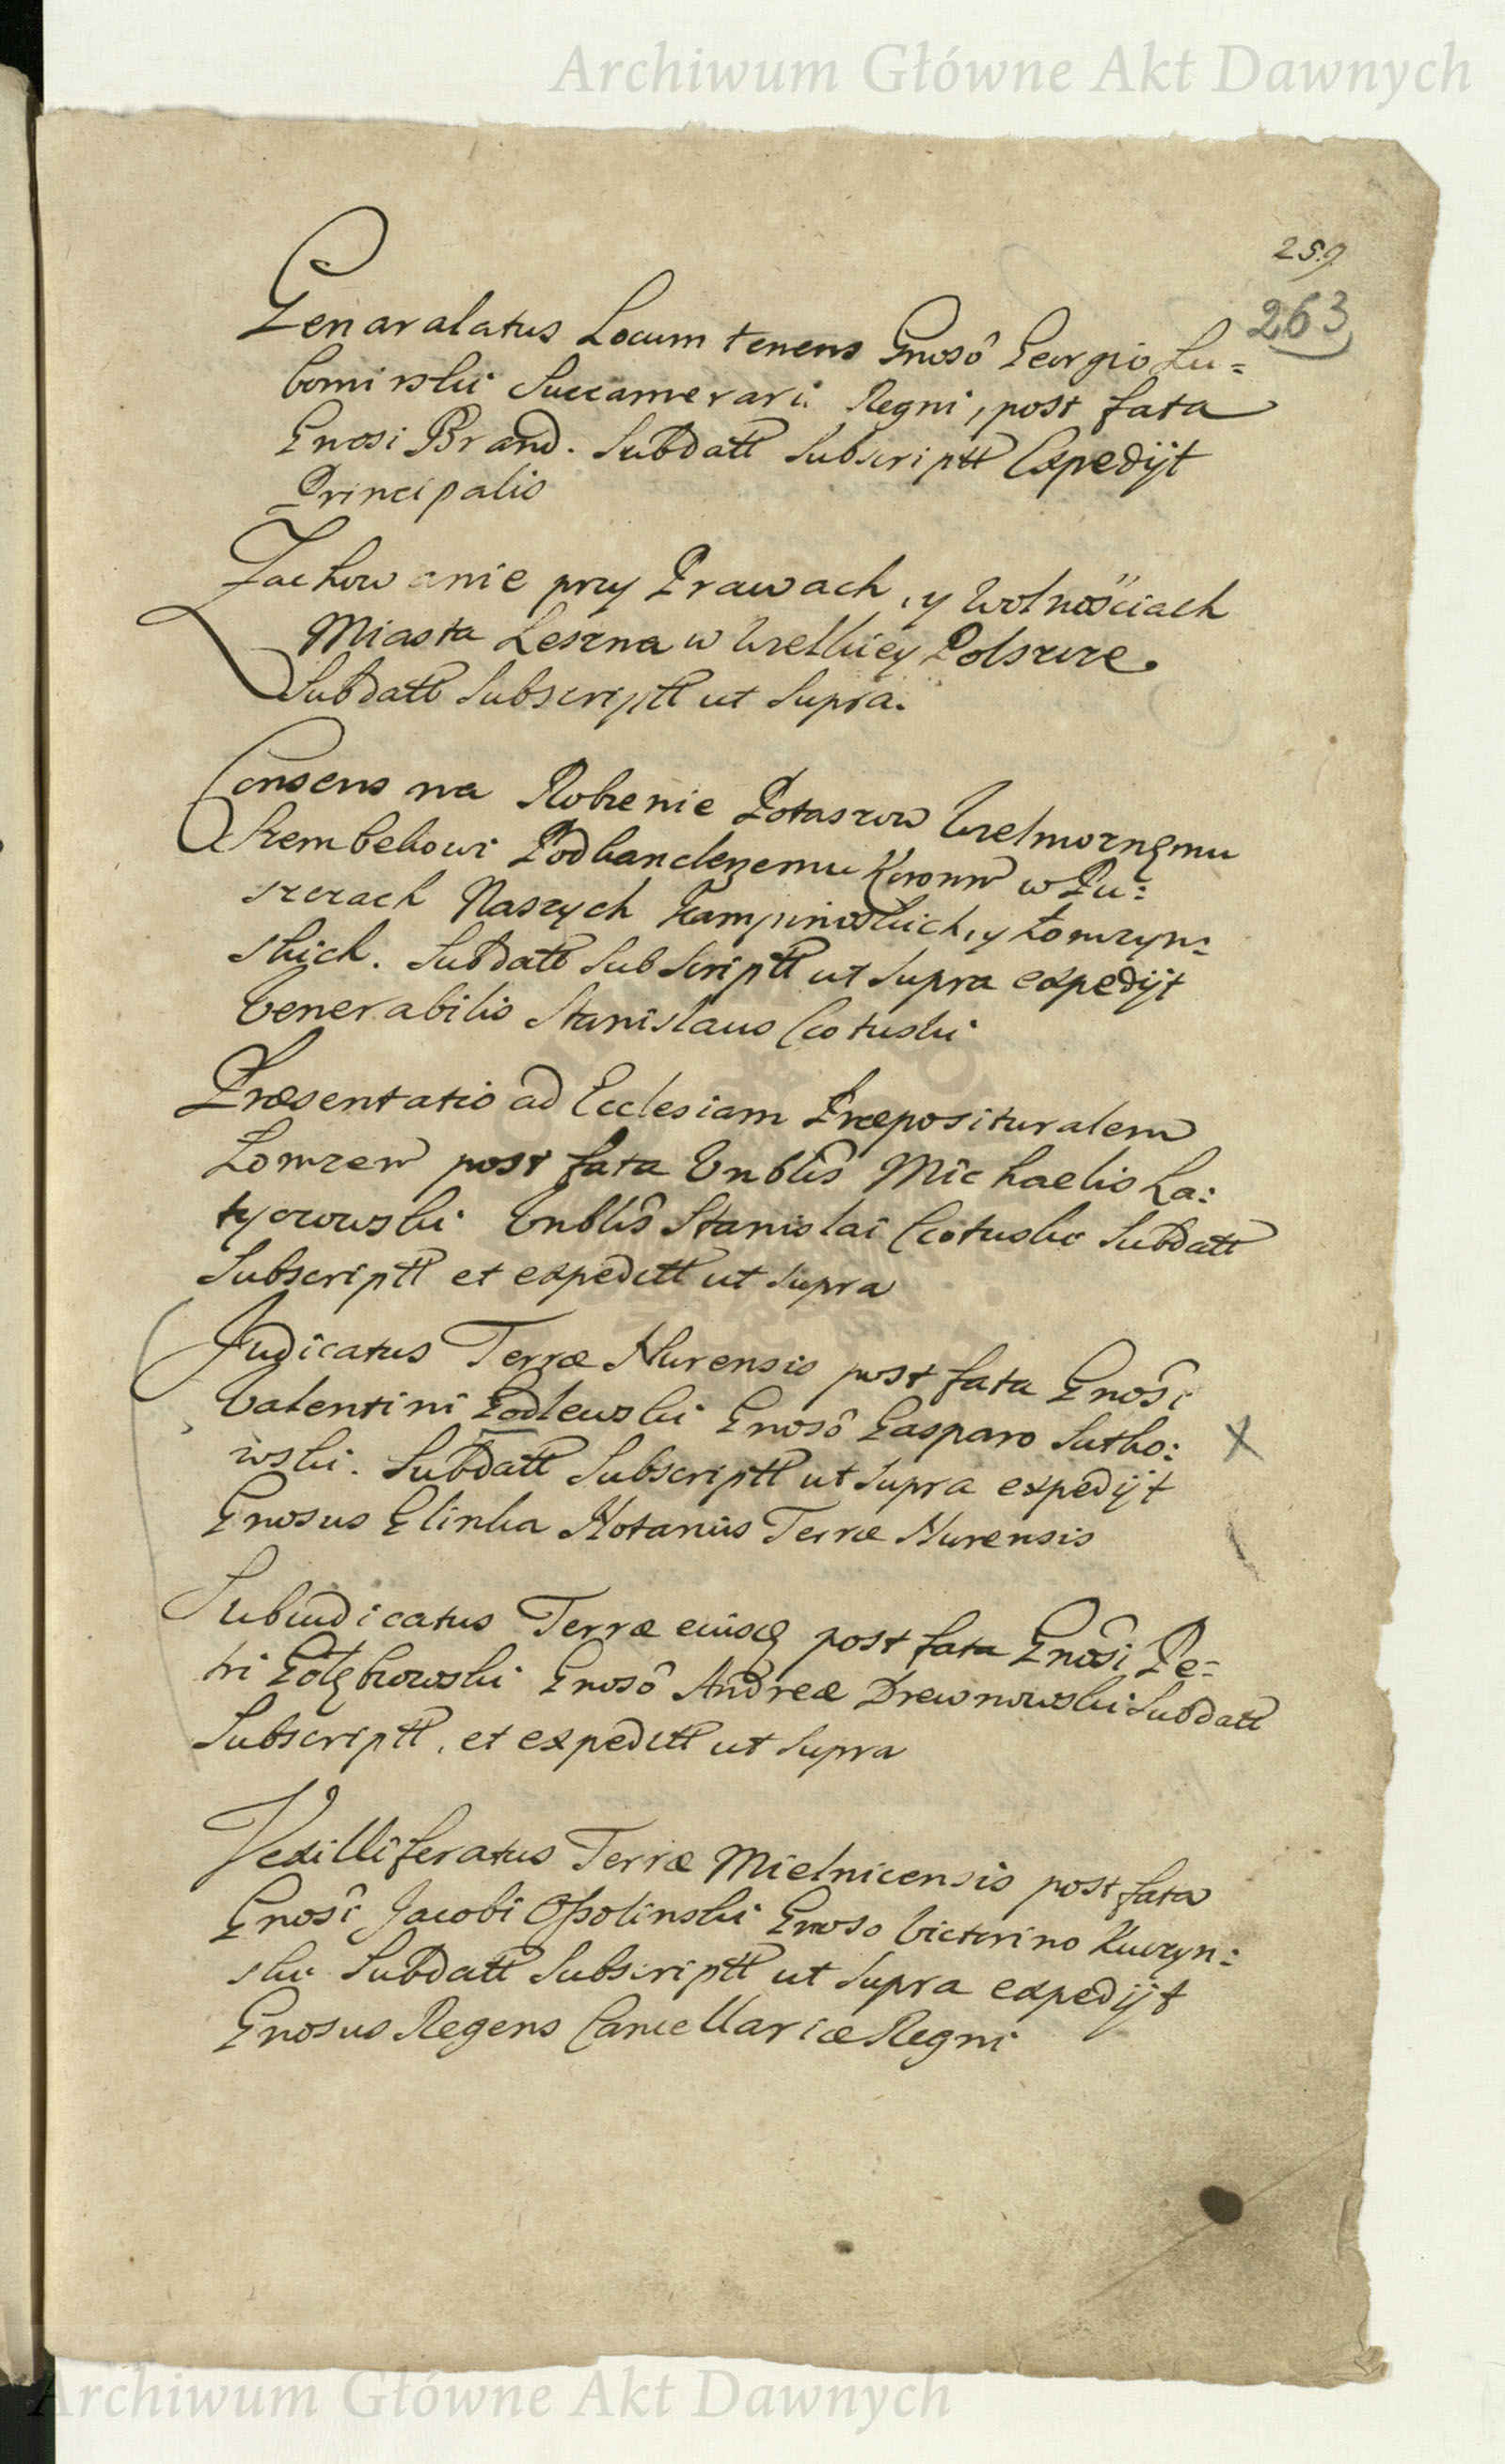 Archiwum Główne Akt Dawnych
259
263
Genaralatus Locum tenens Gnosô Georgio Lu=
bomirski Succamerari Regni, post fata
Gnosi Brand. Subdatt Subscriptt Expedijt
Principalis
Zachowanie przy Prawach, y Wolnościach
Miasta Leszna w Wielkiey Polszcze.
Subdatt Subscriptt ut Supra.
Consens na Robienie Potaszow Wielmożnęmu
Szembekowi Podkanclerzemu Koronn w Pu:
szczach Naszych Kampinoskich, y Łomzyn:
skich. Subdatt Subscriptt ut Supra expedijt
Venerabilis Stanislaus Cotuski
Præsentatio ad Ecclesiam Præposituralem
Lomzen post fata Vnblis Michaelis La:
tyczowski Vnblis Stanislai Cotuski Subdatt
Subscriptt et expeditt ut Supra
Judicatus Terræ Nurensis post fata Gnosi
Valentini Godlewski Gnosô Gasparo Sutko:
wski. Subdatt Subscriptt ut Supra expedijt
Gnosus Glinka Notarius Terræ Nurensis
Subiudicatus Terræ eiusq post fata Gnosi Pe=
tri Gołębiowski Gnosô Andreæ Drewnowski Subdatt
Subscriptt, et expeditt ut Supra
Vexilliferatus Terræ Mielnicensis post fata
Gnosi Jacobi Ossolinski Gnoso Victorino Kuczyn:
ski Subdatt Subscriptt ut Supra expedijt
Gnosus Regens Cancellariæ Regni
Archiwum Główne Akt Dawnych